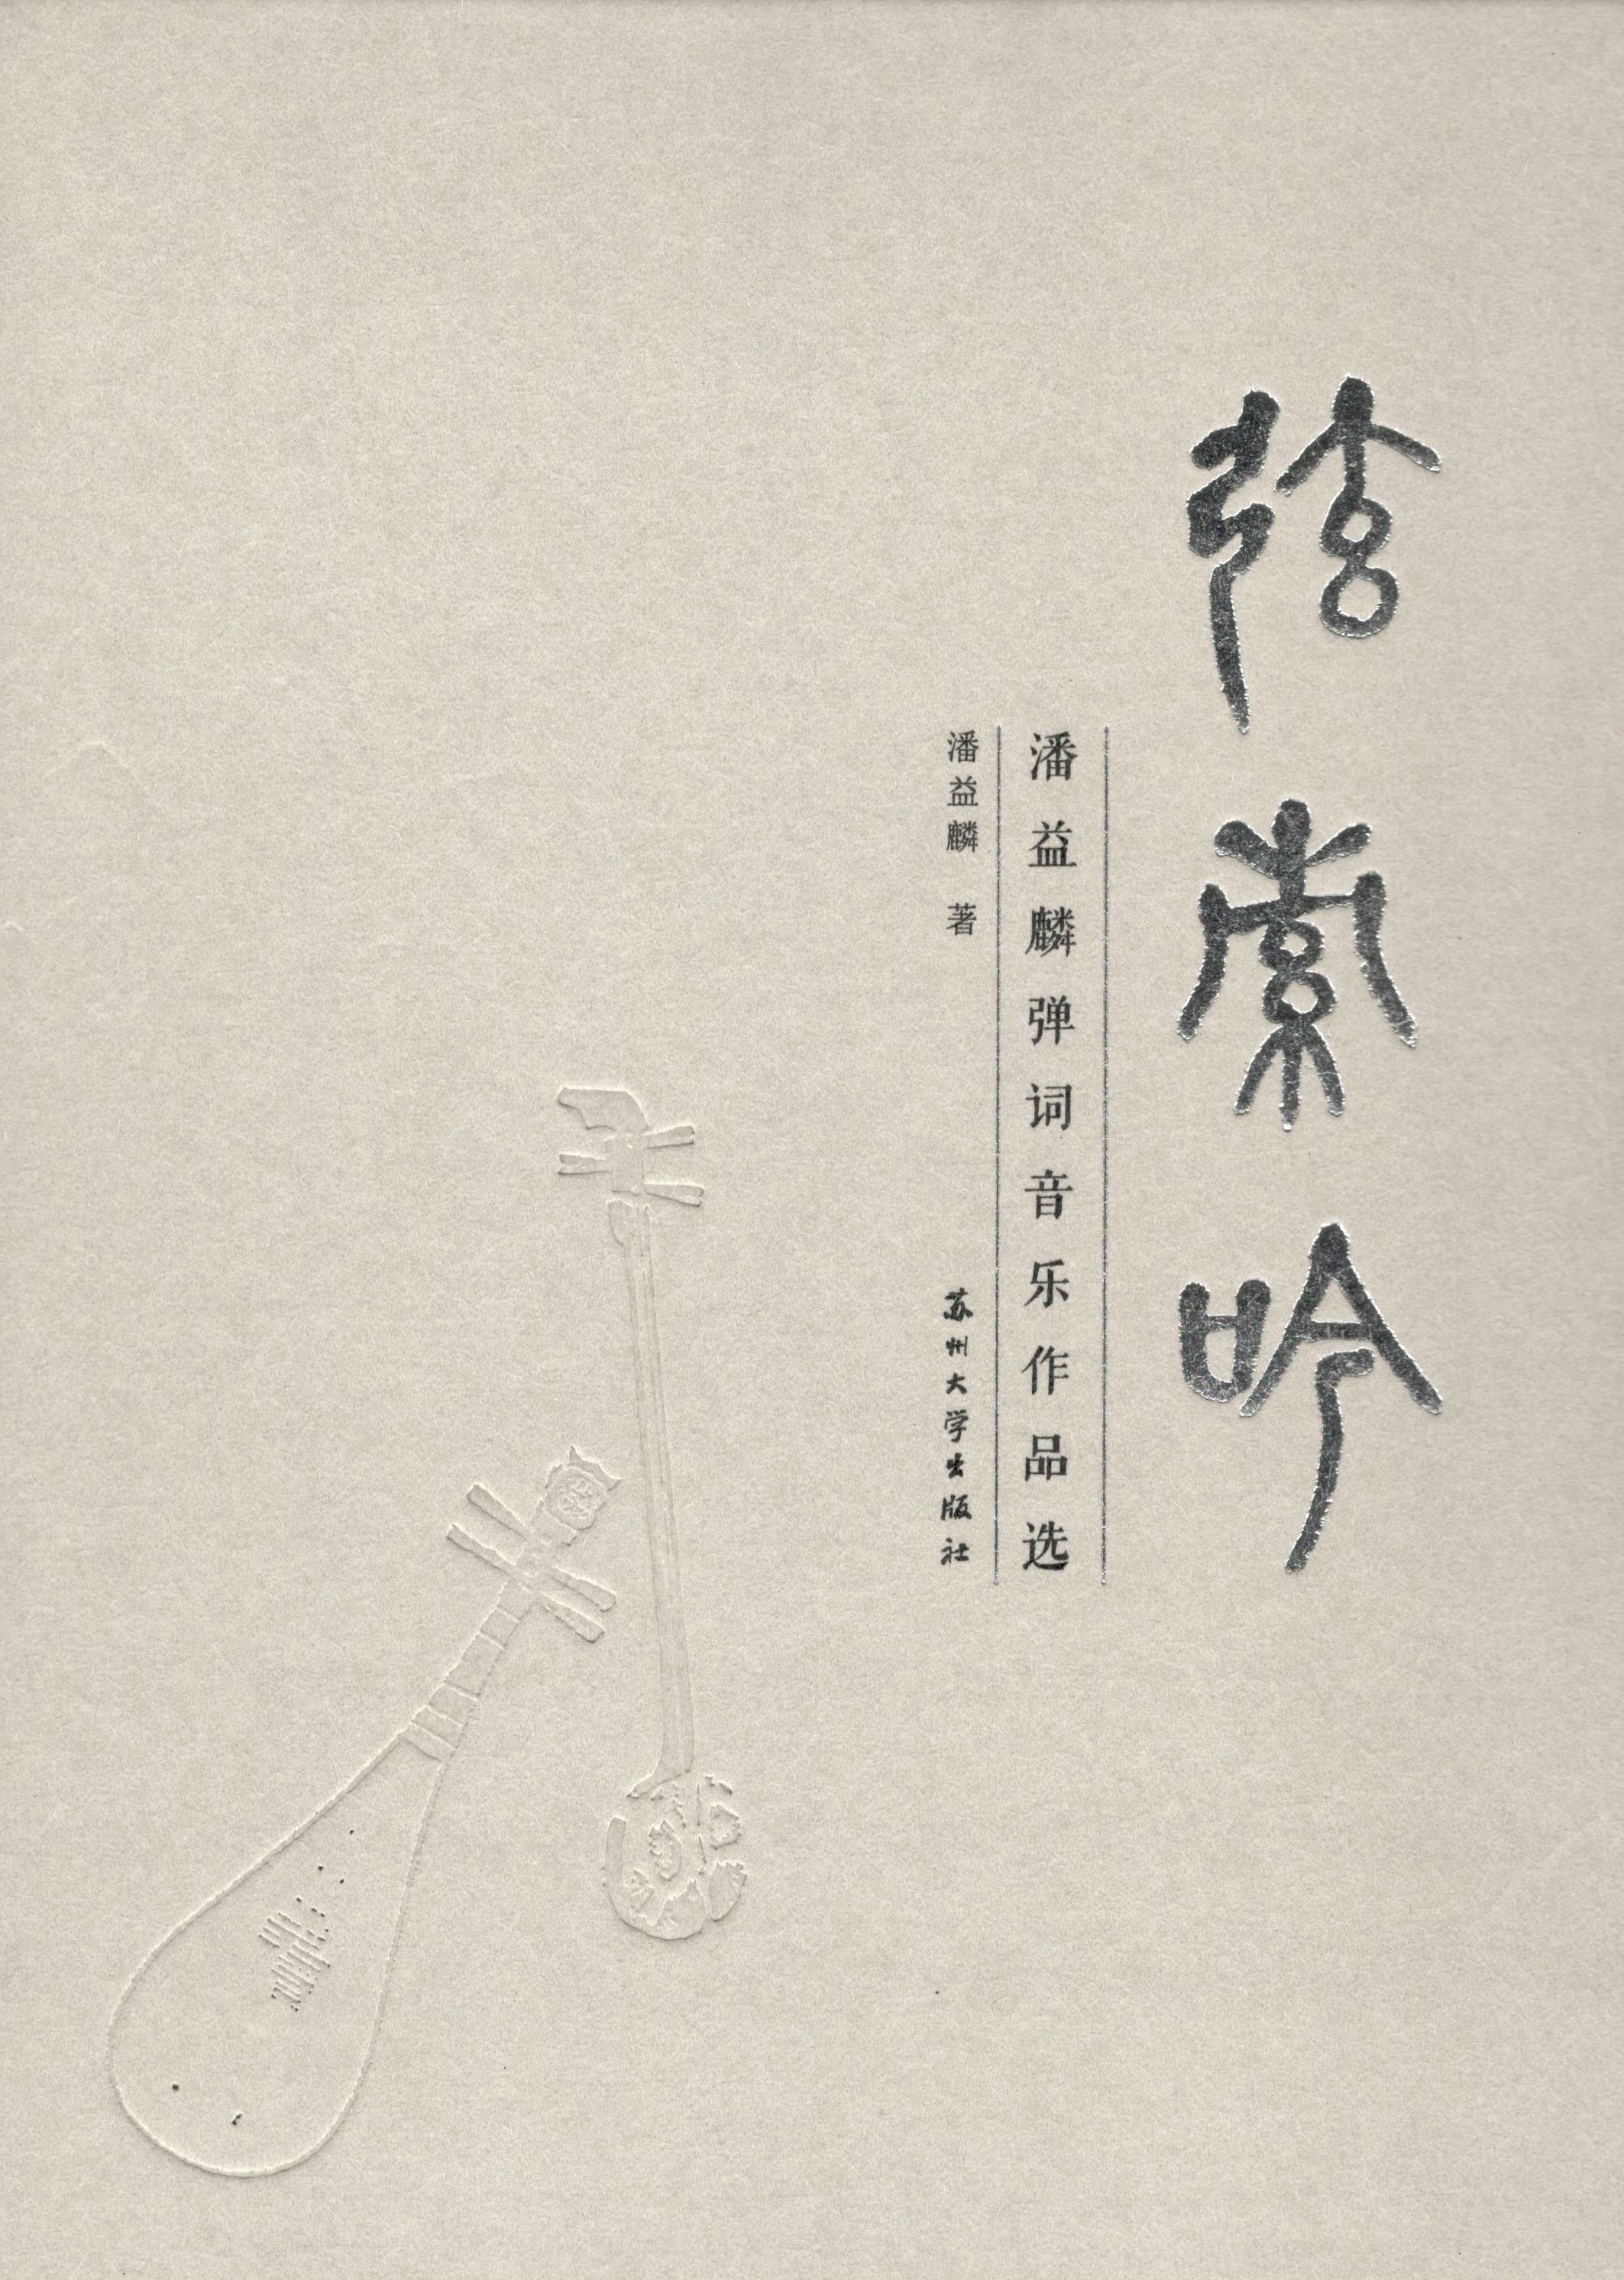 弦索吟
潘益麟弹词音乐作品选
潘益麟 著
苏州大学出版社